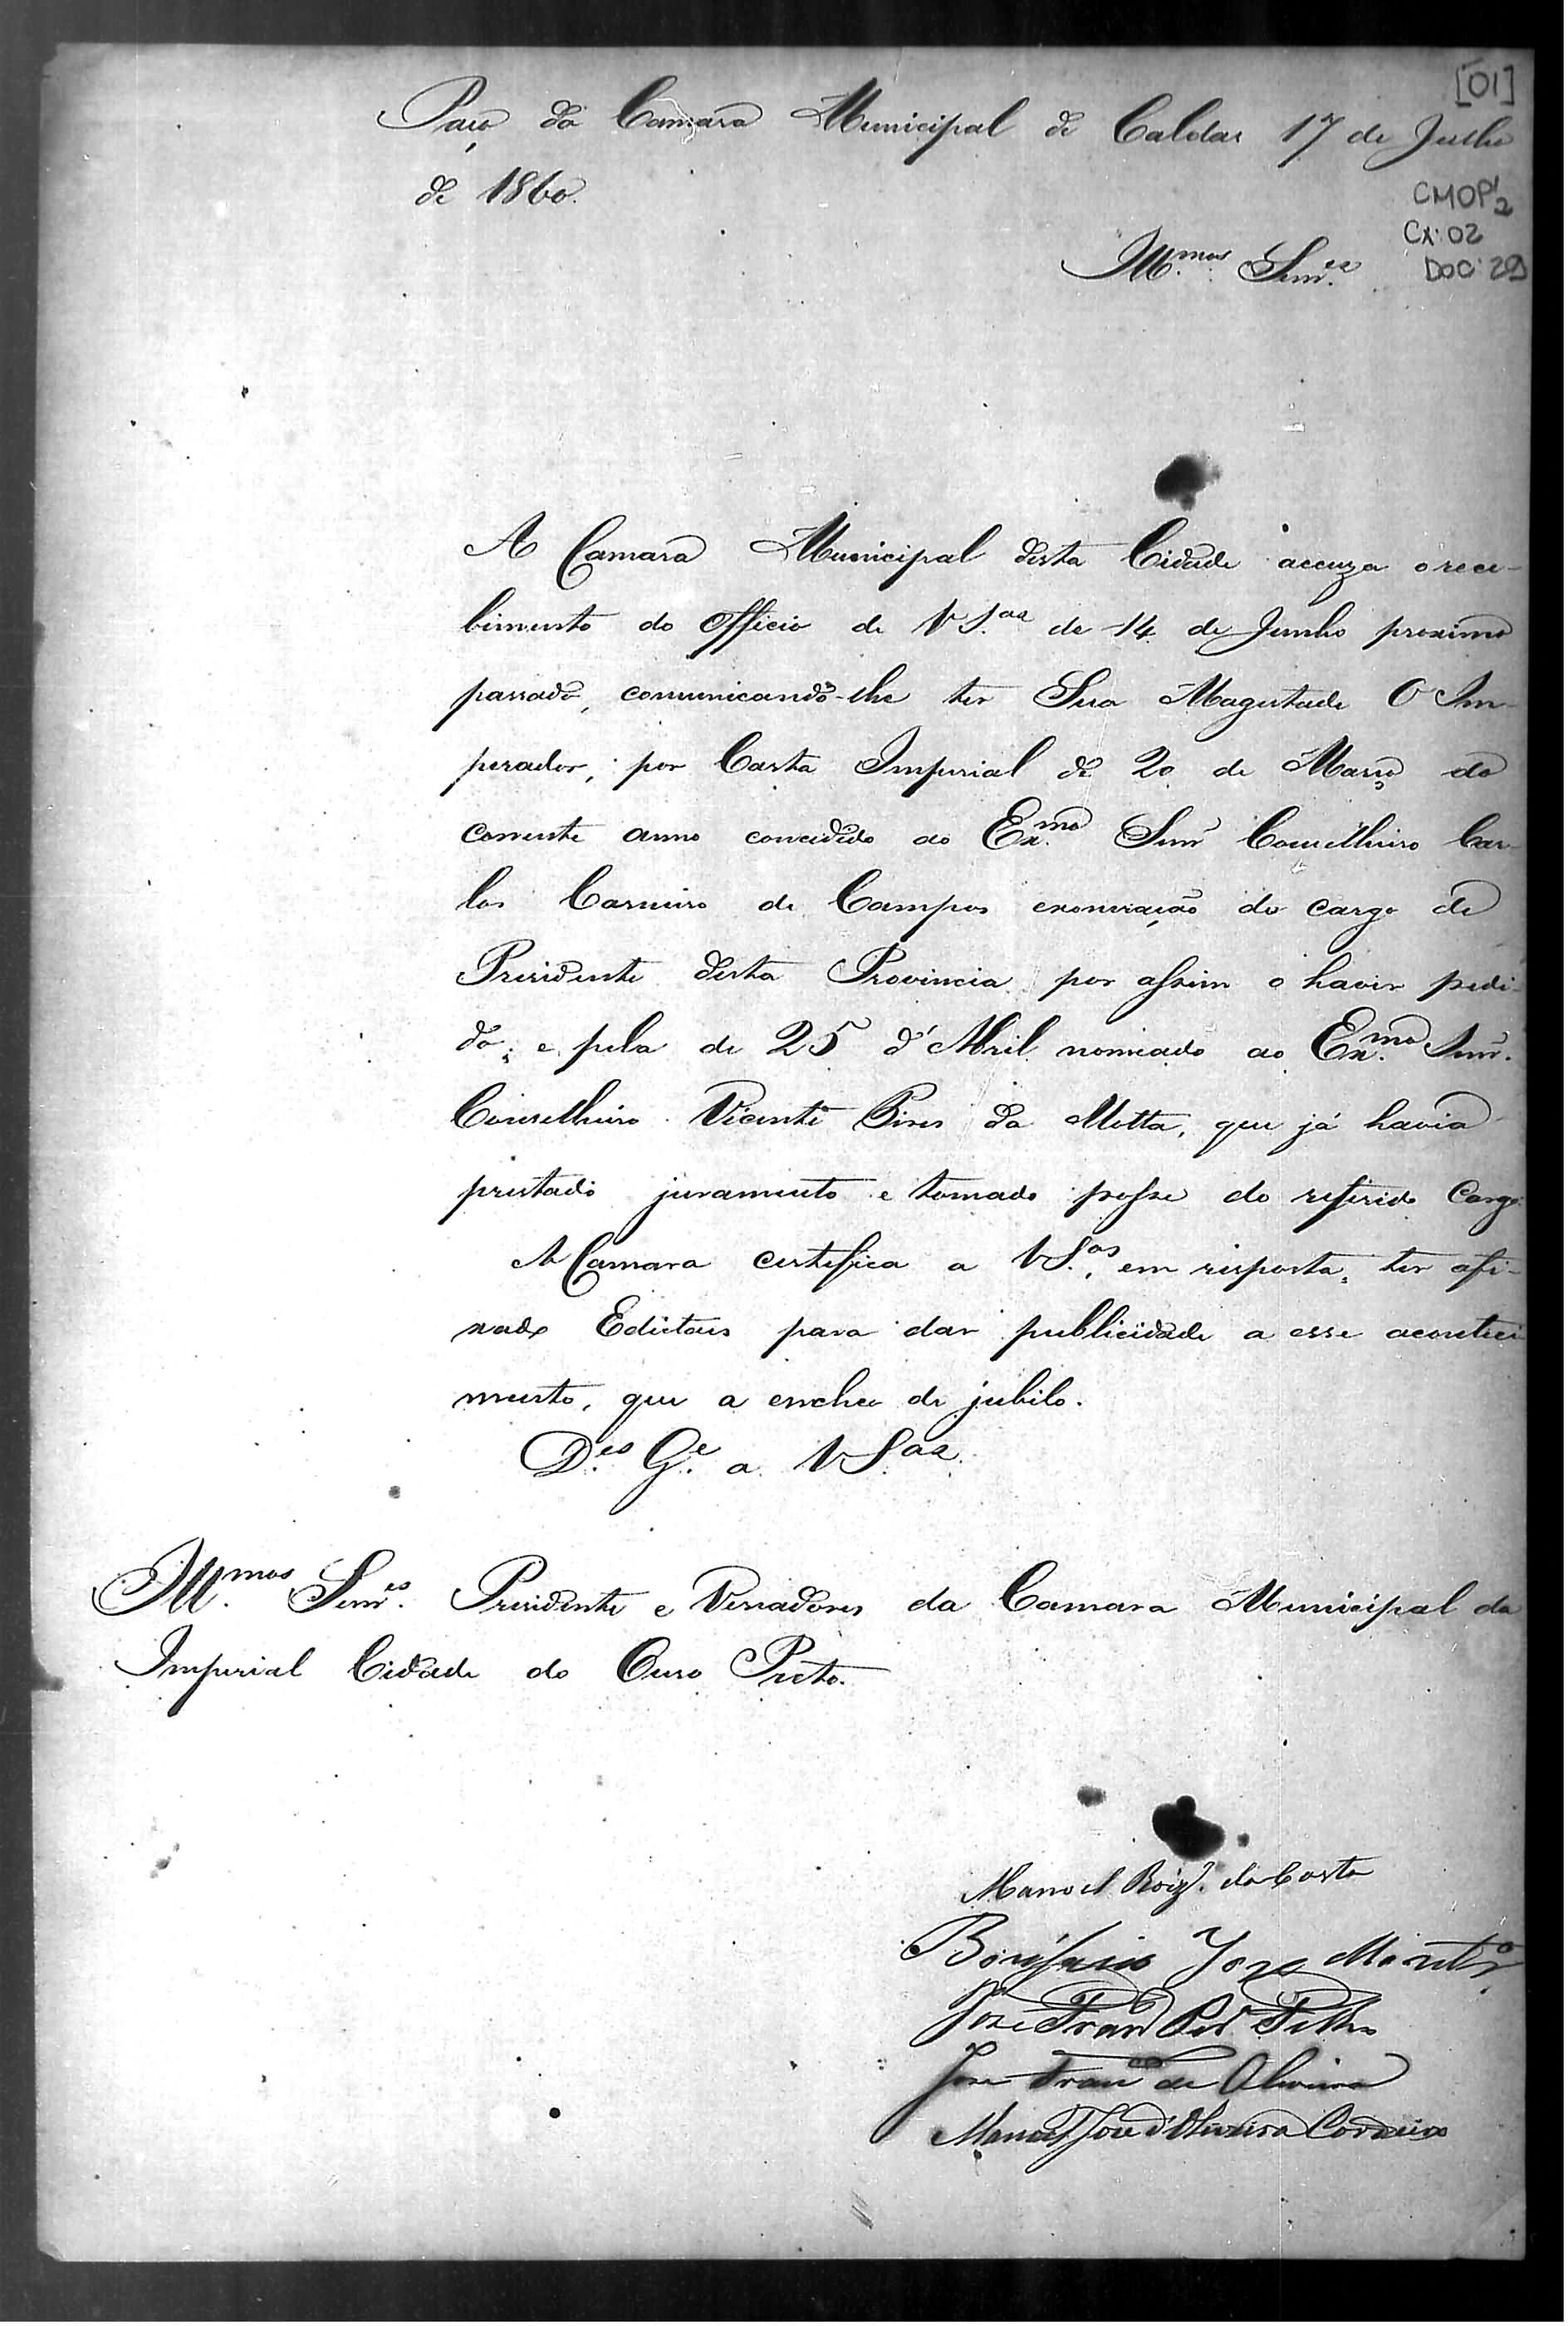 [01]
Paço da Camara Municipal de Caldas 17 de Julho
de 1860.
CMOP 1/2
CX: 02
DOC: 29
Ill.mos Senr.es
A Camara Municipal desta Cidade accuza o rece-
bimento do Officio de V S.as de 14 de Junho proximo
passado, comunicando-lhe ter Sua Magestade O Im-
perador, por Carta Imperial de 20 de Março do
corrente anno concedido ao Ex.mo Senr Conselheiro Car-
los Carneiro de Campos exoneração do cargo de
Presidente desta Provincia por assim o haver pedi-
do; e pela de 25 d'Abril nomeado ao Ex.mo Senr.
Conselheiro Vicente Pires da Motta, que já havia
prestado juramento e tomado posse do referido Cargo.
A Camara certifica a V S.as, em resposta, ter afi-
xado Edictaes para dar publicidade a esse aconteci-
mento, que a encheo de jubilo.
D.es G.e a V S.as
Ill.mos Senr.es Presidente e Veriadores da Camara Municipal da
Imperial Cidade do Ouro Preto.
Manoel Roiz. da Costa
Bonifacio Joze
Joze Fran Filho
Jose Franco de Oliveira
Manoel Joze d'Oliveira Cordeiro